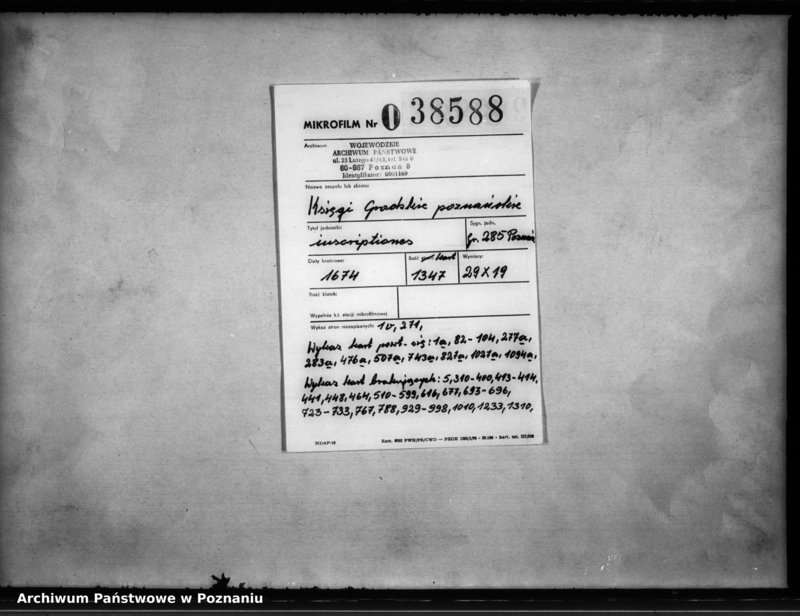 MIKROFILM Nr 0 38588
Archiwum
WOJEWÓDZKIE
ARCHIWUM PAŃSTWOWE
ul. 23 Lutego 41/43, tel.
60-967 Poznań 9
Identyfikator: 0001169
Nazwa zespołu lub zbioru:
Księgi Grodzkie poznańskie
Tytuł jednostki:
inscriptiones
Sygn. jedn.
Gr. 285 Poznań
Daty krańcowe:
1674
Ilość kart
1347
Wymiary:
29 X 19
Ilość klatek:
Wypełnia kl. stacji mikrofilmowej
Wykaz stron niezapisanych: 1v, 271,
Wykaz kart powt. się: 1a, 82-104, 277a,
283a, 476a, 507a, 743a, 821a, 1021a, 1094a,
Wykaz kart brakujących: 5, 310-400, 413-414,
441, 448, 464, 510-599, 616, 677, 693-696,
723-733, 767, 788, 929-998, 1010, 1233, 1310,
NDAP-13
Archiwum Państwowe w Poznaniu